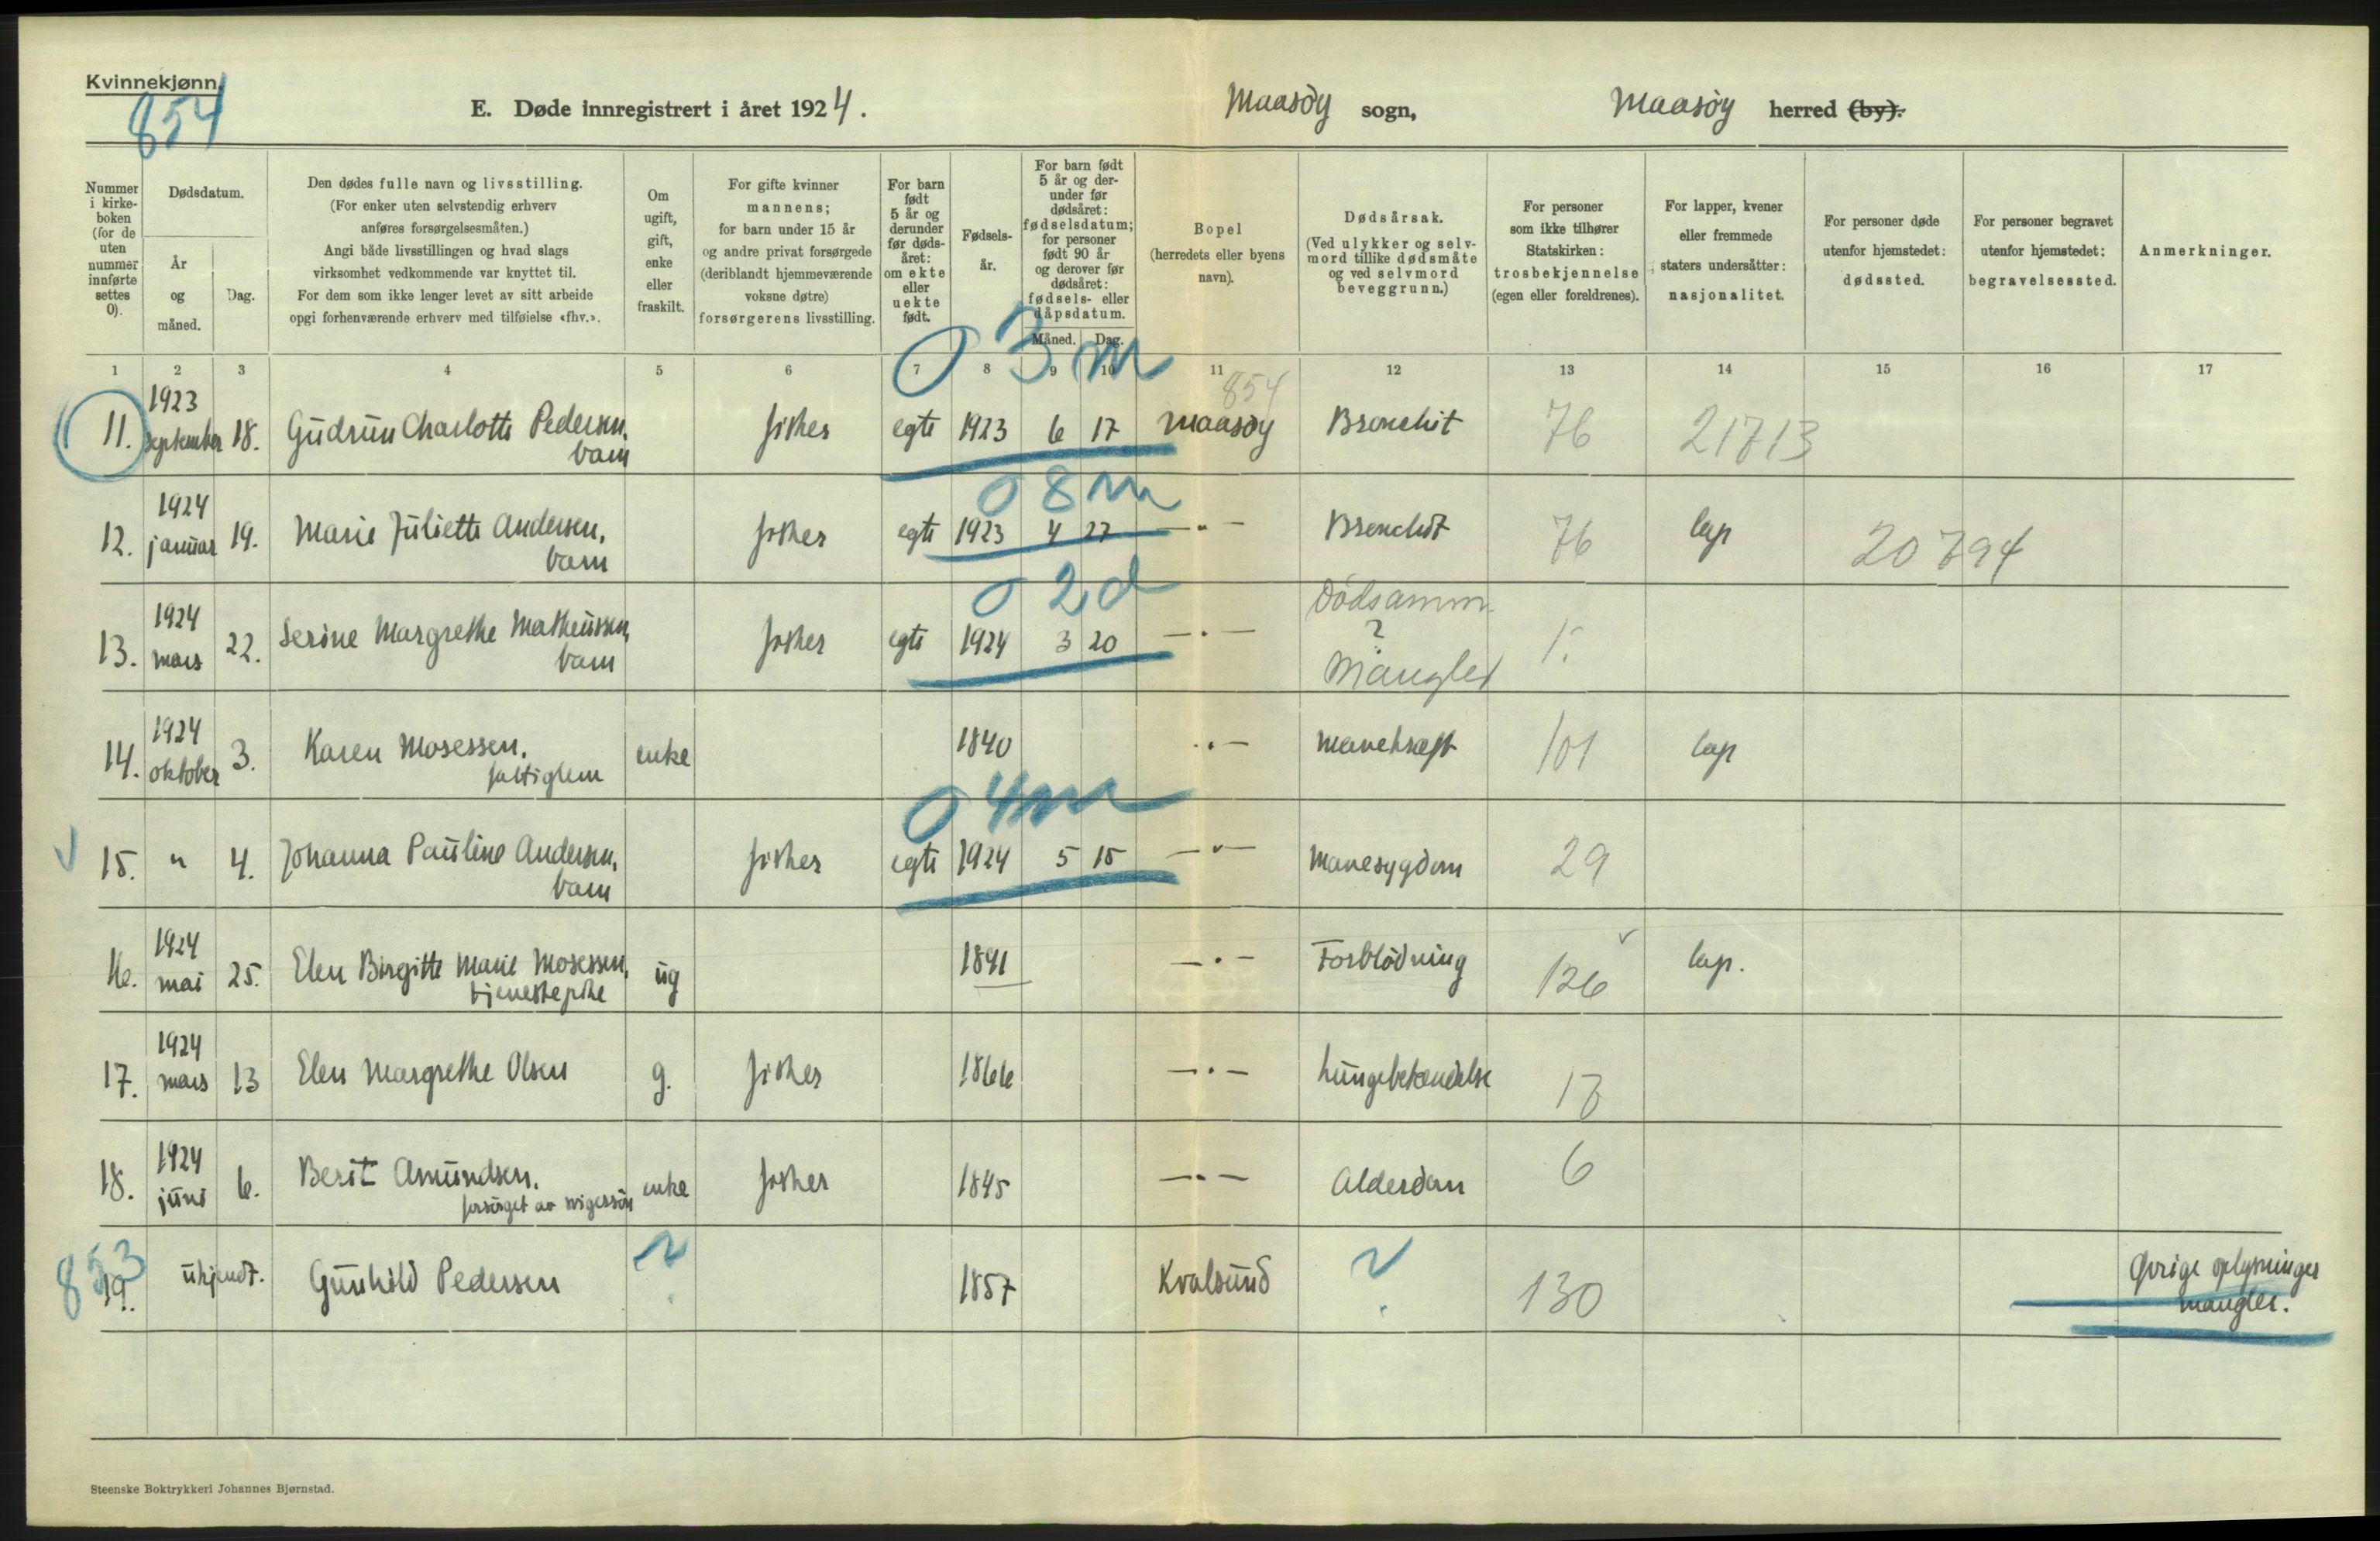 Kvinnekjønn.
854
E. Døde innregistrert i året 1924. Maasöy sogn, Maasöy herred (by).
Nummer i kirke-boken (for de uten nummer innførte settes 0).
Dødsdatum.
År og måned.
Dag.
Den dødes fulle navn og livsstilling.
(For enker uten selvstendig erhverv
anføres forsørgelsesmåten.)
Angi både livsstillingen og hvad slags
virksomhet vedkommende var knyttet til.
For dem som ikke lenger levet av sitt arbeide
opgi forhenværende erhverv med tilføielse «fhv.».
Om
ugift,
gift,
enke
eller
fraskilt.
For gifte kvinner
mannens;
for barn under 15 år
og andre privat forsørgede
(deriblandt hjemmeværende
voksne døtre)
forsørgerens livsstilling.
For barn
født
5 år og
derunder
før døds-
året:
om ekte
eller
uekte
født.
Fødsels-
år.
For barn født
5 år og der-
under før
dødsåret:
fødselsdatum;
for personer
født 90 år
og derover før
dødsåret:
fødsels- eller
dåpsdatum.
Måned. Dag.
Bopel
(herredets eller byens
navn).
Dødsårsak.
(Ved ulykker og selv-
mord tillike dødsmåte
og ved selvmord
beveggrunn.)
For personer
som ikke tilhører
Statskirken:
trosbekjennelse
(egen eller foreldrenes).
For lapper, kvener
eller fremmede
staters undersåtter:
nasjonalitet.
For personer døde
utenfor hjemstedet:
dødssted.
For personer begravet
utenfor hjemstedet:
begravelsessted.
Anmerkninger.
1 2 3 4 5 6 7 8 9 10 11 12 13 14 15 16 17
0 3 m
854
1923
11. september 18. Gudrun Charlotte Pedersen, fisker egte 1923 6 17 Maasöy Bronchit 76 21713
barn
0 8 m
1924
12. januar 19. Marie Juliette Andersen, fisker egte 1923 4 27 —"— Bronchit 76 lap 20794
barn
0 2 d
Dödsanm.
?
1924
13. mars 22. Serine Margrethe Matheussen, fisker egte 1924 3 20 —"— mangler 15
barn
1924
14. oktober 3. Karen Mosessen, enke 1840 —"— mavekræft 101 lap
fattiglem
0 4 m
15. " 4. Johanna Pauline Andersen, fisker egte 1924 5 15 —"— Mavesygdom 29
barn
1924
16. mai 25. Elen Birgitte Marie Mosessen, ug 1891 —"— Forblödning 126 lap.
tjenestepike
1924
17. mars 13 Elen Margrethe Olsen g. fisker 1866 —"— Lungebetændelse 17
1924
18. juni 6. Berit Amundsen. enke fisker 1845 —"— Alderdom 6
forsörget av svigersön
853
19. ukjendt. Gunhild Pedersen ? 1857 Kvalsund ? 130 Övrige oplysninger
mangler.
Steenske Boktrykkeri Johannes Bjørnstad.